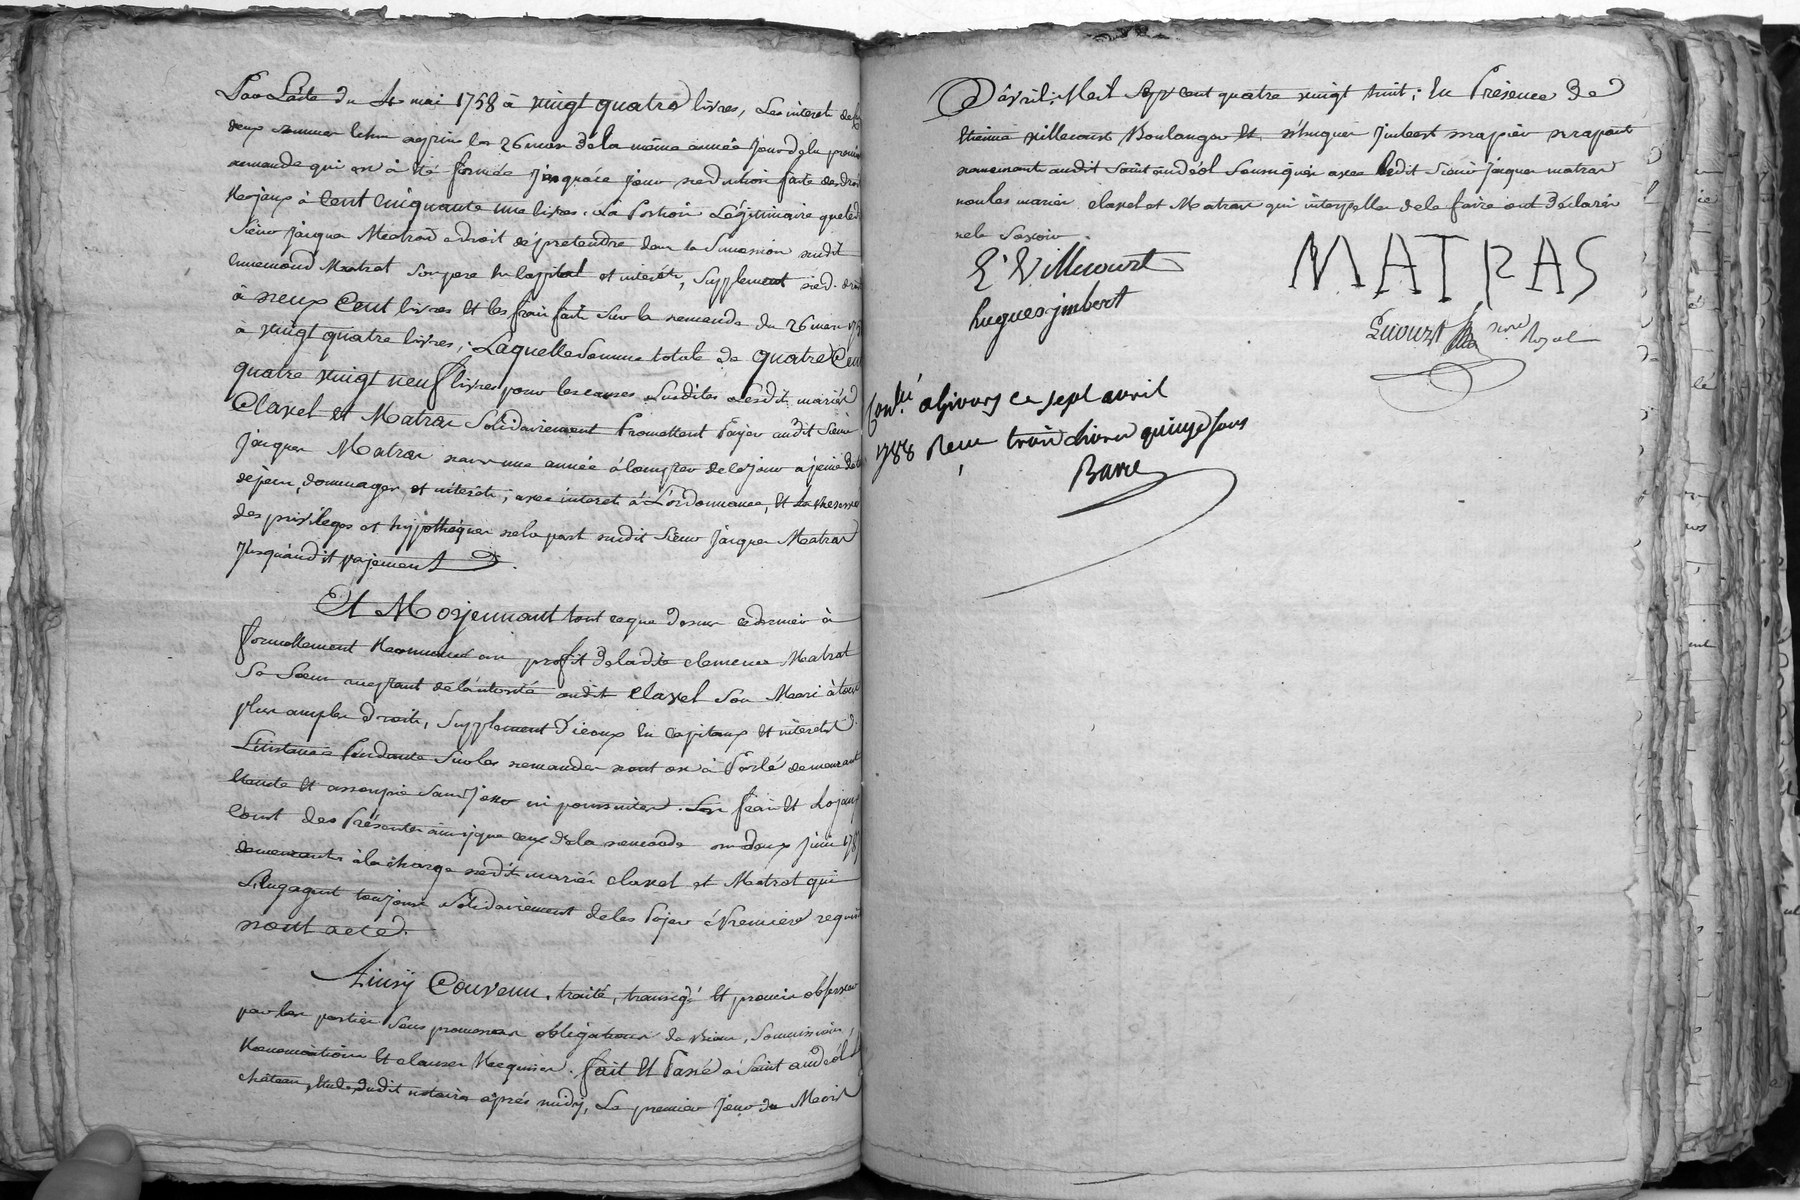 Par L'acte du 4 mai 1758 à vingt quatre livres, Les interet de
deux sommes le tout depuis les 26 mars de la même année jour de la
demande qui en à été formée jusqu'à ce jour déduction faite des
Royaux à Cent Cinquante une livres. La Portion Légitimaire que
Sieur jacque Matras a droit de pretendre dans la Succession dudit
Ennemond Matrat Son pere En Capital et interets, Supplement
à deux Cent livres Et les frais faits Sur la demande du 26 mars
à vingt quatre livres; Laquelle Somme totale de quatre Cent
quatre vingt neuf livres pour les causes Susdites Lesdits mariés
Clavel et Matras Solidairement Promettent Payer audit Sieur
jacques Matras dans une année à Compter de ce jour a peine de
depens, dommages et interêts, avec interet à L'ordonnance, Et La
des privileges et hypotheques de la part dudit Sieur jacques Matras
jusquàudit payement
Et Moyennant tout ce que dessus ce dernier à
formellement Renoncé au profit de ladite clemence Matrat
Sa Soeur de l'autorité dudit Clavel Son Mari à tous
plus amples droits, Supplement d'iceux En Capitaux et interets
L'instance Pendante Sur les demandes dont on à Parlé demeurant
Eteinte Et assoupie Sans poursuites. Les frais Et Loyaux
Cout des Présentes ainsy que ceux de la demande du deux juin
demeurants à la charge desdits mariés clavel et Matrat qui
S'engagent toujours Solidairement de les Payer à Premiere
dont acte.
Ainsy Convenu, traité, transigé Et promis observer
par les parties Sous promesses obligations de Biens, Soumissions,
Renonciations Et clauses Requises. fait Et Passé à Saint andéol
château, Etude dudit notaire aprés midy, Le premier jour du Mois
D'avril, Mil Sept cent quatre vingt huit; En Présence de
Etienne Villecourt Boulanger Et d'hugues jmbert
audit Saint andéol Soussignés avec Ledit Sieur jacques matras
non les mariés clavel et Matras qui interpellés de le faire ont déclaré
ne le Savoir.
E. Villecourt
MATRAS
hugues jmbert
Royal
Conlé a Givors ce sept avril
1788 Reçu trois Livres quinze sous
Barre